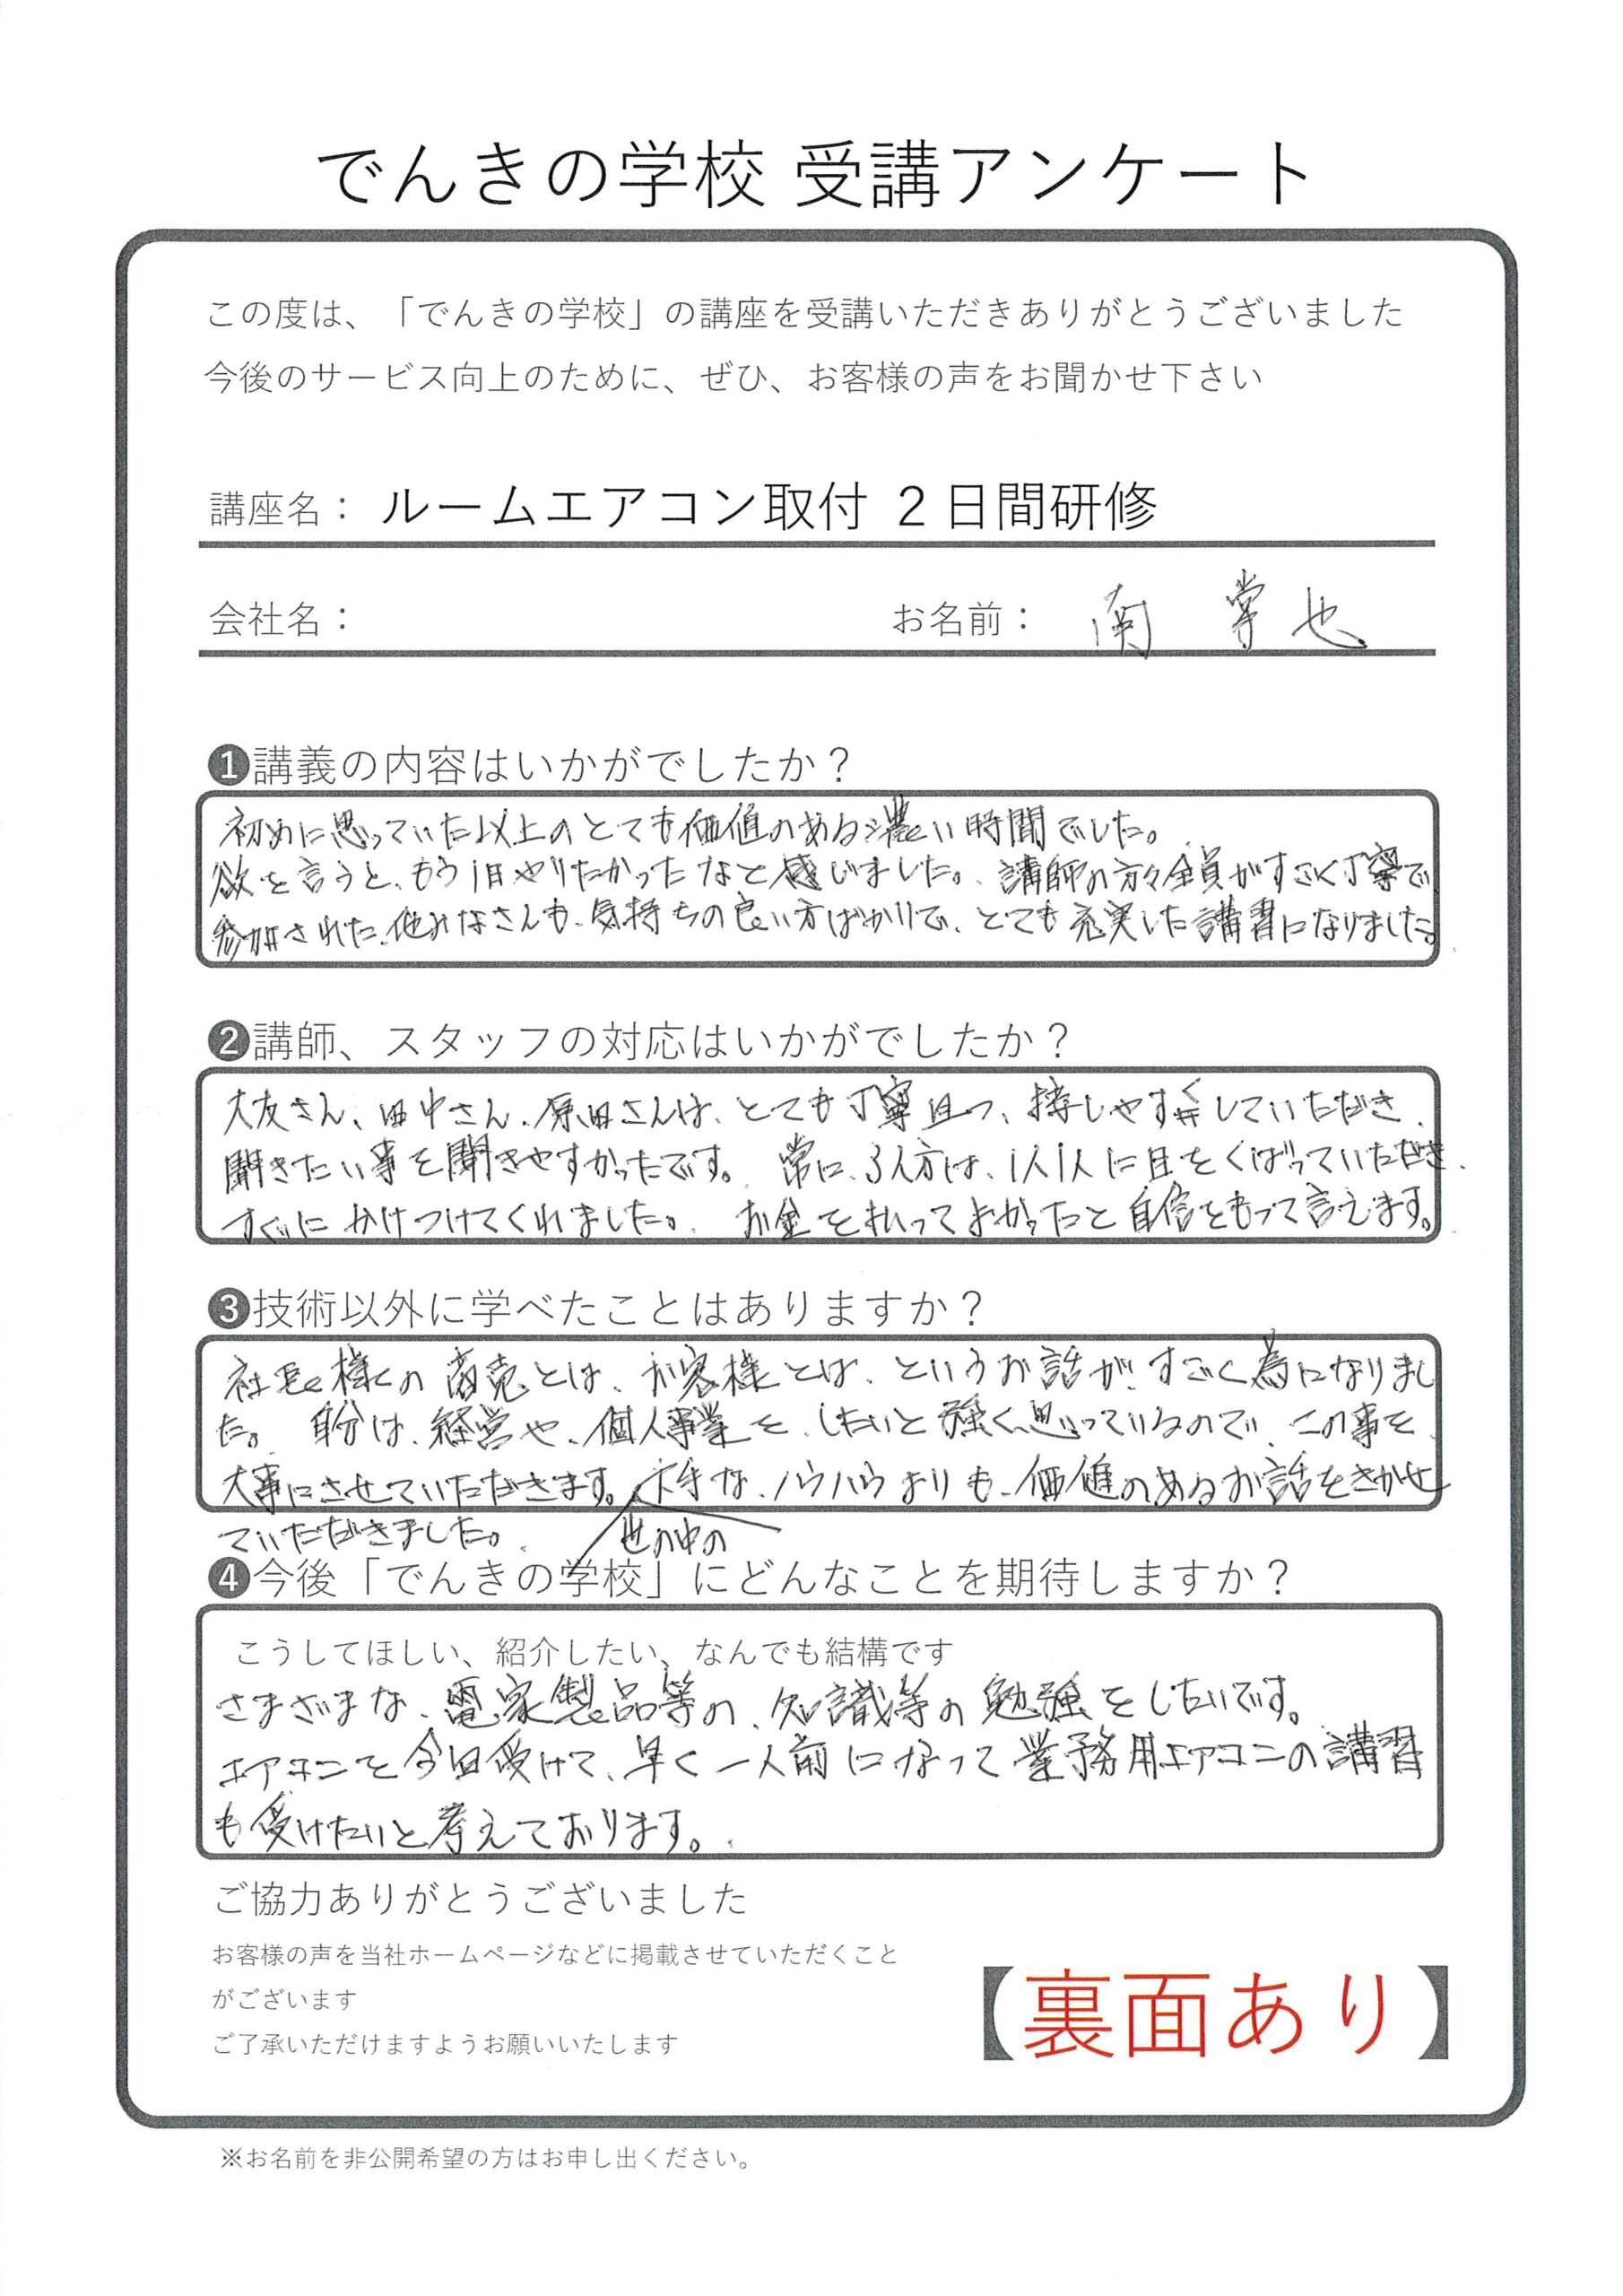 でんきの学校 受講アンケート
この度は、「でんきの学校」の講座を受講いただきありがとうございました
今後のサービス向上のために、ぜひ、お客様の声をお聞かせ下さい
講座名： ルームエアコン取付 ２日間研修
会社名： お名前： 南 掌也
❶講義の内容はいかがでしたか？
初めに思っていた以上のとても価値のある濃い時間でした。
欲を言うと、もう1日やりたかったなと感じました。講師の方々全員がすごく丁寧で
参加された、他みなさんも、気持ちの良い方ばかりで、とても充実した講習になりました。
❷講師、スタッフの対応はいかがでしたか？
大友さん、田中さん、原田さんは、とても丁寧且つ、接しやすくしていただき、
聞きたい事を聞きやすかったです。常に、3人方は、1人1人に目をくばっていただき、
すぐにかけつけてくれました。お金を払ってよかったと自信をもって言えます。
❸技術以外に学べたことはありますか？
社長様の商売とは、お客様とは、というお話が、すごく為になりまし
た。自分は、経営や、個人事業を、したいと強く思っているので、この事を
大事にさせていただきます。世の中の下手な、ノウハウよりも、価値のあるお話をきかせ
ていただきました。
❹今後「でんきの学校」にどんなことを期待しますか？
こうしてほしい、紹介したい、なんでも結構です
さまざまな、電家製品等の、知識等の勉強をしたいです。
エアコンを今回受けて、早く一人前になって業務用エアコンの講習
も受けたいと考えております。
ご協力ありがとうございました
お客様の声を当社ホームページなどに掲載させていただくこと
がございます
ご了承いただけますようお願いいたします
【裏面あり】
※お名前を非公開希望の方はお申し出ください。